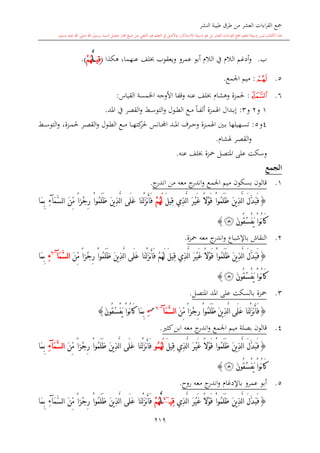 جمع القراءات العشر من طرق طيبة النشر
ب. وأدغم اللام في اللام أبو عمرو ويعقوب بخلف عنهما، هكذا (قِيل لَّهُمْ).
٥. لَهُمْ : ميم الجمع.
٦. ٱلسَّمَآءِ : لحمزة وهشام بخلف عنه وقفا الأوجه الخمسة القياس:
١ و٢ و٣: إبدال الهمزة ألفاً مع الطول والتوسط والقصر في المد.
٤و٥: تسهيلها بين الهمزة وحرف المد المجانس لحركتها مع الطول والقصر لحمزة، والتوسط
والقصر لهشام.
وسكت على المتصل حمزة بخلف عنه.
الجمع
١. قالون بسكون ميم الجمع واندرج معه من اندرج.
﴿ فَبَدَّلَ ٱلَّذِينَ ظَلَمُوا۟ قَوْلًا غَيْرَ ٱلَّذِى قِيلَ لَهُمْ فَأَنزَلْنَا عَلَى ٱلَّذِينَ ظَلَمُوا۟ رِجْزًا مِّنَ ٱلسَّمَآءِ بِمَا
كَانُوا۟ يَفْسُقُونَ ﴾
٢. النقاش بالإشباع واندرج معه حمزة.
﴿ فَبَدَّلَ ٱلَّذِينَ ظَلَمُوا۟ قَوْلًا غَيْرَ ٱلَّذِى قِيلَ لَهُمْ فَأَنزَلْنَا عَلَى ٱلَّذِينَ ظَلَمُوا۟ رِجْزًا مِّنَ ٱلسَّمَآءِ بِمَا
كَانُوا۟ يَفْسُقُونَ ﴾
٣. حمزة بالسكت على المد المتصل.
﴿ فَأَنزَلْنَا عَلَى ٱلَّذِينَ ظَلَمُوا۟ رِجْزًا مِّنَ ٱلسَّمَآءِ بِمَا كَانُوا۟ يَفْسُقُونَ ﴾
٤. قالون بصلة ميم الجمع واندرج معه ابن كثير.
﴿ فَبَدَّلَ ٱلَّذِينَ ظَلَمُوا۟ قَوْلًا غَيْرَ ٱلَّذِى قِيلَ لَهُمُو فَأَنزَلْنَا عَلَى ٱلَّذِينَ ظَلَمُوا۟ رِجْزًا مِّنَ ٱلسَّمَآءِ بِمَا
كَانُوا۟ يَفْسُقُونَ ﴾
٥. أبو عمرو بالإدغام واندرج معه روح.
﴿ فَبَدَّلَ ٱلَّذِينَ ظَلَمُوا۟ قَوْلًا غَيْرَ ٱلَّذِى قِيل لَّهُمْ فَأَنزَلْنَا عَلَى ٱلَّذِينَ ظَلَمُوا۟ رِجْزًا مِّنَ ٱلسَّمَآءِ بِمَا
٢١٩